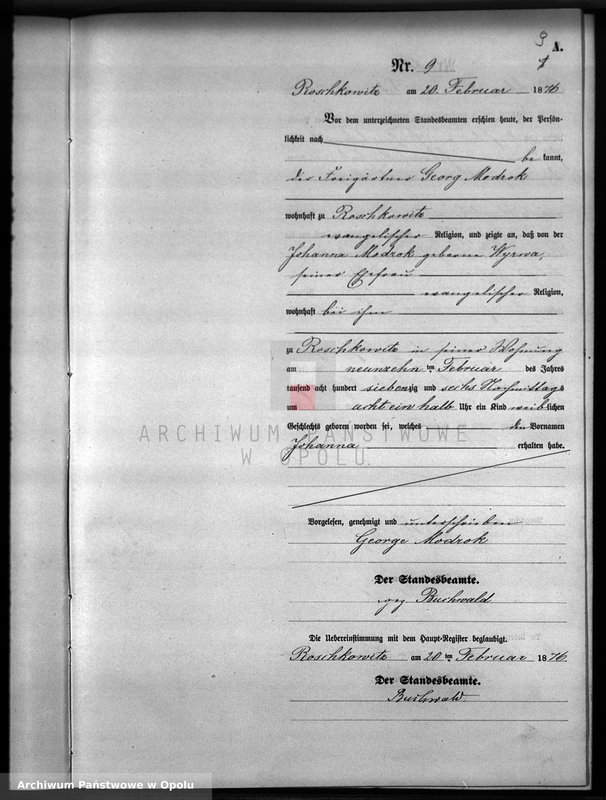 9
A.
Nr. 9
1
Roschkowitz am 20. Februar 1876
Vor dem unterzeichneten Standesbeamten erschien heute, der Persön-
lichkeit nach
be kannt,
der Freigärtner Georg Modrok
wohnhaft zu Roschkowitz
evangelischer Religion, und zeigte an, daß von der
Johanna Modrok geborne Wyrwa,
seiner Ehefrau
evangelischer Religion,
wohnhaft bei ihm
zu Roschkowitz in seiner Wohnung
am neunzehn ten Februar des Jahres
tausend acht hundert siebenzig und sechs Nachmittags
um acht ein halb Uhr ein Kind weiblichen
Geschlechts geboren worden sei, welches den Vornamen
Johanna erhalten habe.
ARCHIWUM PAŃSTWOWE
W OPOLU
Vorgelesen, genehmigt und unterschrieben
George Modrok
Der Standesbeamte.
gez Buchwald
Die Uebereinstimmung mit dem Haupt-Register beglaubigt.
Roschkowitz am 20 ten Februar 1876
Der Standesbeamte.
Buchwald
Archiwum Państwowe w Opolu